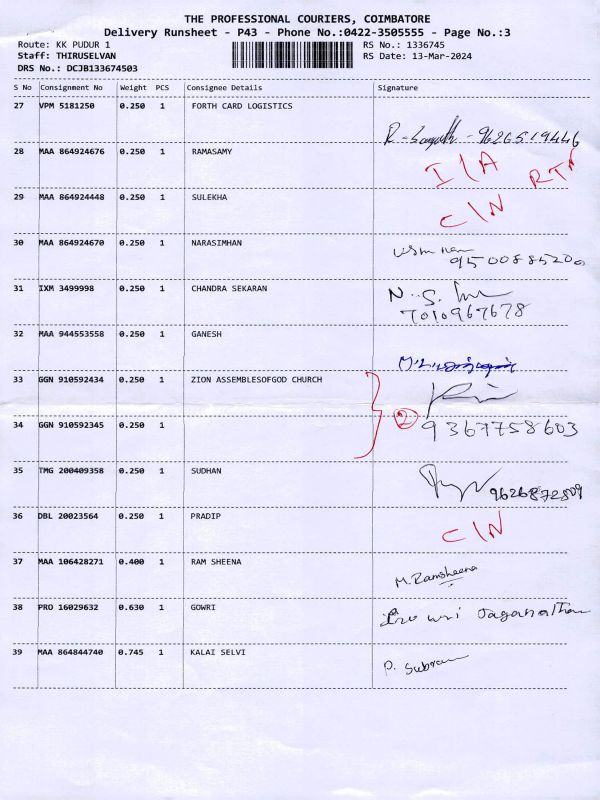 THE PROFESSIONAL COURIERS, COIMBATORE
Delivery Runsheet - P43 - Phone No.:0422-3505555 - Page No.:3
Route: KK PUDUR 1 RS No.: 1336745
Staff: THIRUSELVAN RS Date: 13-Mar-2024
DRS No.: DCJB133674503
S No Consignment No Weight PCS Consignee Details Signature
27 VPM 5181250 0.250 1 FORTH CARD LOGISTICS
9626519446
28 MAA 864924676 0.250 1 RAMASAMY
I\A RTA
29 MAA 864924448 0.250 1 SULEKHA
C\N
30 MAA 864924670 0.250 1 NARASIMHAN
31 IXM 3499998 0.250 1 CHANDRA SEKARAN
N. S.
7010967678
32 MAA 944553558 0.250 1 GANESH
33 GGN 910592434 0.250 1 ZION ASSEMBLESOFGOD CHURCH
34 GGN 910592345 0.250 1
2 9367758603
35 TMG 200409358 0.250 1 SUDHAN
9626872809
36 DBL 20023564 0.250 1 PRADIP
C\N
37 MAA 106428271 0.400 1 RAM SHEENA
M. Ramsheena
38 PRO 16029632 0.630 1 GOWRI
Gowri Jaganathan
39 MAA 864844740 0.745 1 KALAI SELVI
P. Subram